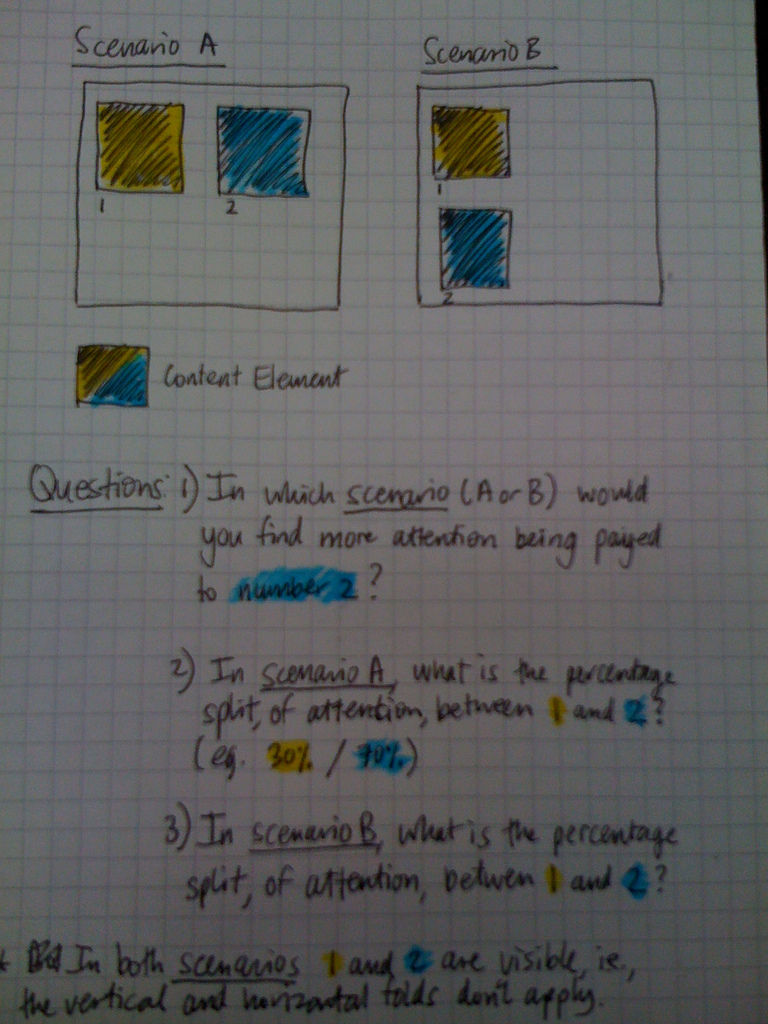 Scenario A
Scenario B
1
2
1
2
Content Element
Questions: 1) In which scenario (A or B) would
you find more attention being payed
to number 2?
2) In scenario A, what is the percentage
split, of attention, between 1 and 2?
(eg. 30% / 70%)
3) In scenario B, what is the percentage
split, of attention, betwen 1 and 2?
* In both scenarios 1 and 2 are visible, ie.,
the vertical and horizontal folds don't apply.